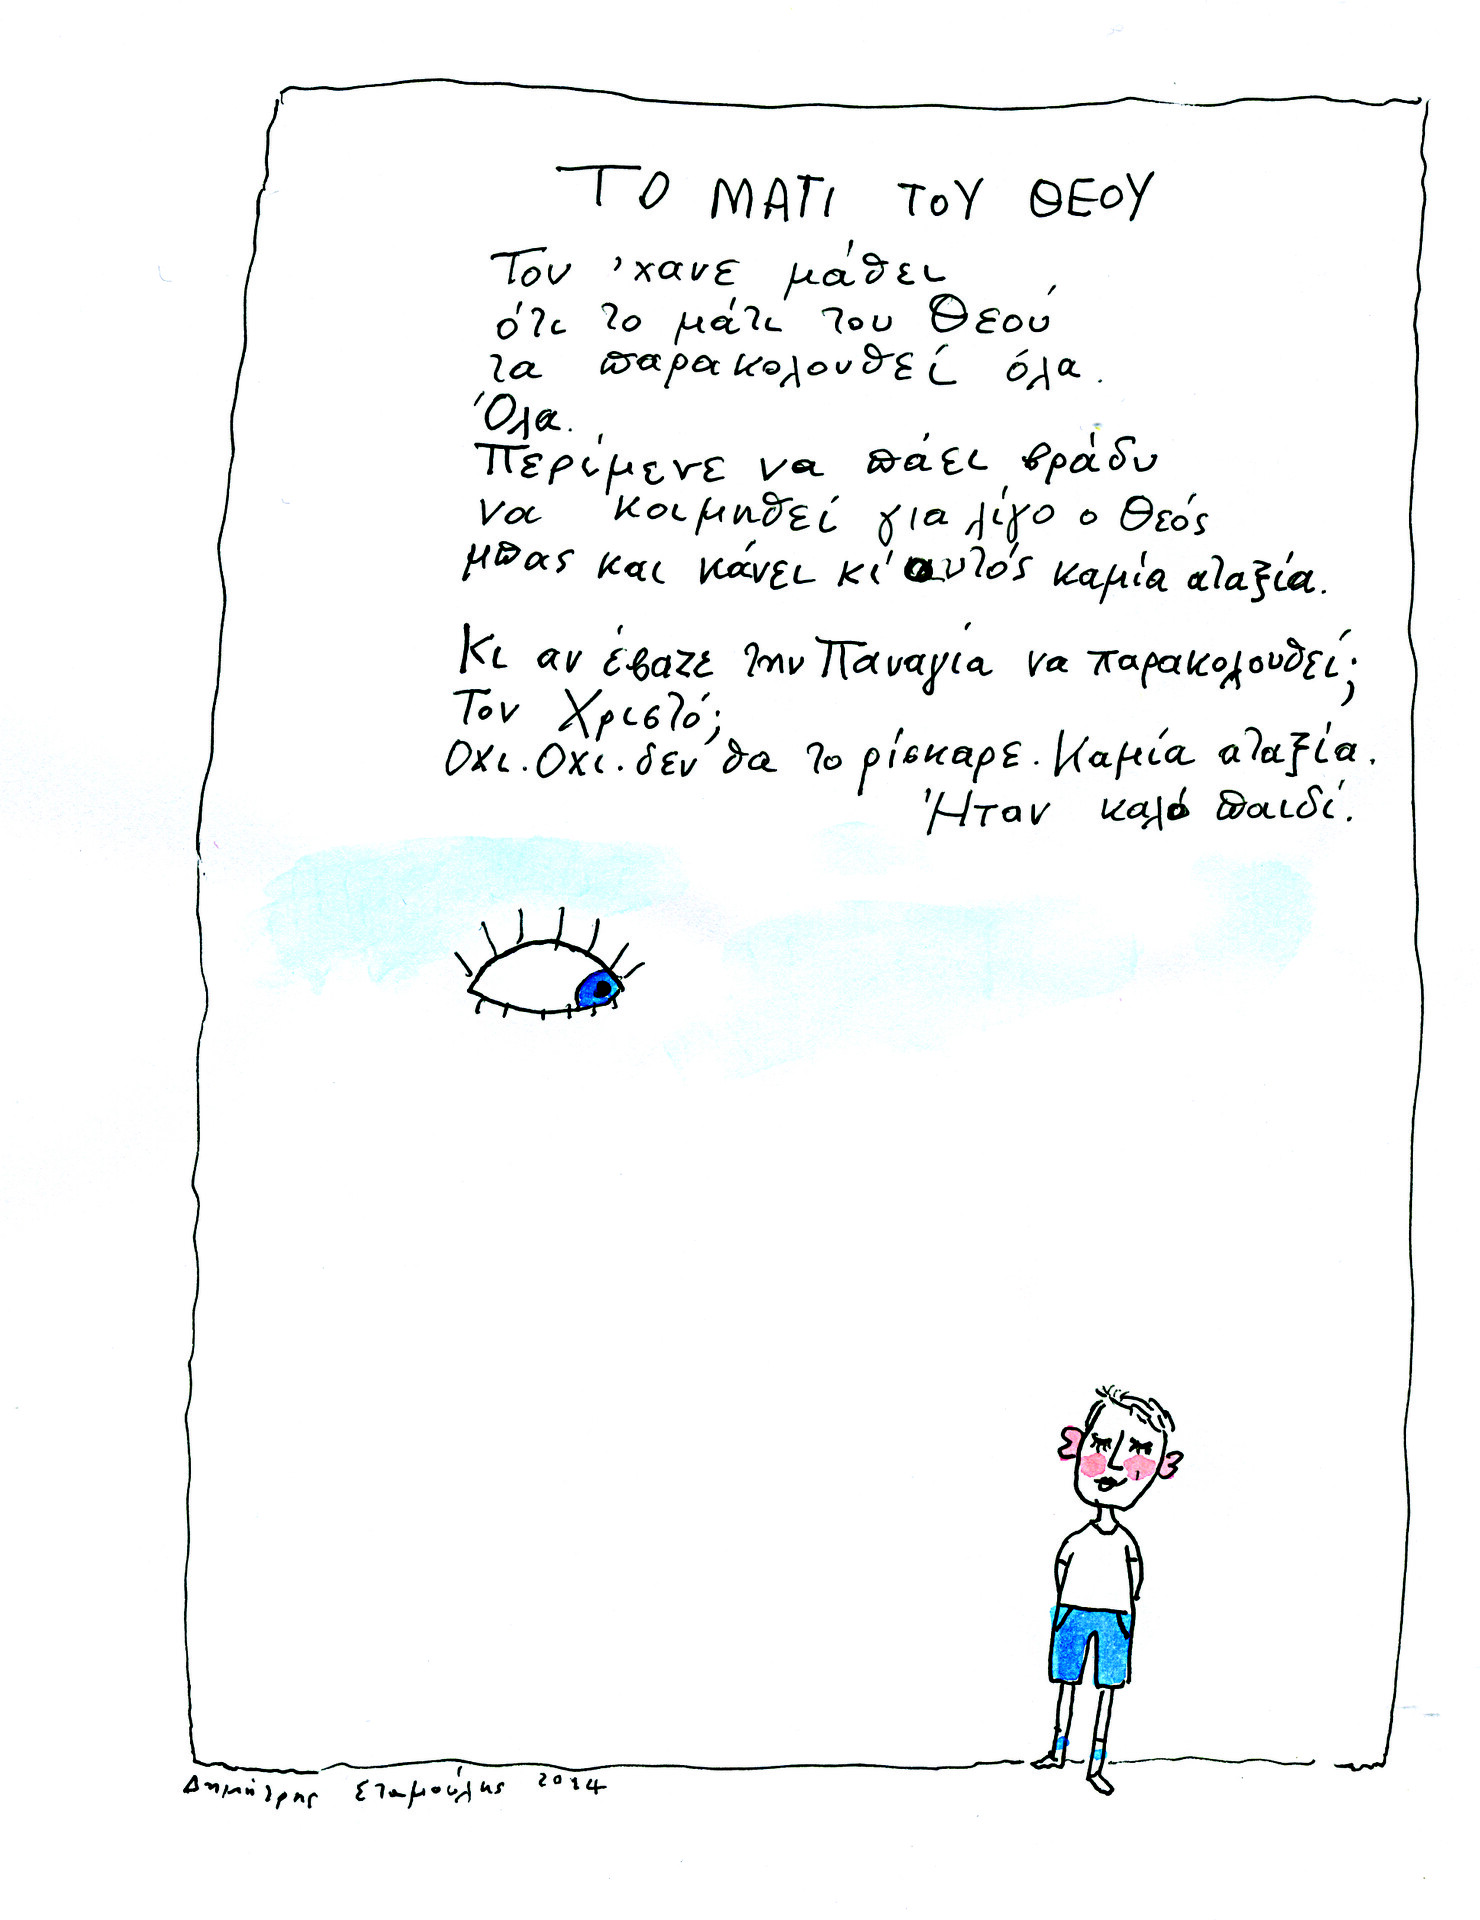 ΤΟ ΜΑΤΙ ΤΟΥ ΘΕΟΥ
Τον 'χανε μάθει
ότι το μάτι του Θεού
τα παρακολουθεί όλα.
Όλα.
Περίμενε να πάει βράδυ
να κοιμηθεί για λίγο ο Θεός
μπας και κάνει κι' αυτός καμία αταξία.
Κι αν έβαζε την Παναγία να παρακολουθεί;
Τον Χριστό;
Οχι. Οχι. δεν θα το ρίσκαρε. Καμία αταξία.
Ήταν καλό παιδί.
Δημήτρης Σταμούλης 2014